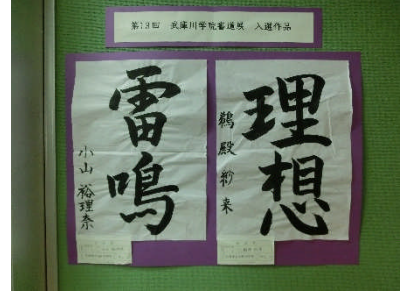 第13回 武庫川学院書道展 入選作品
理想
鵜殿紗来
雷鳴
小山 裕理奈